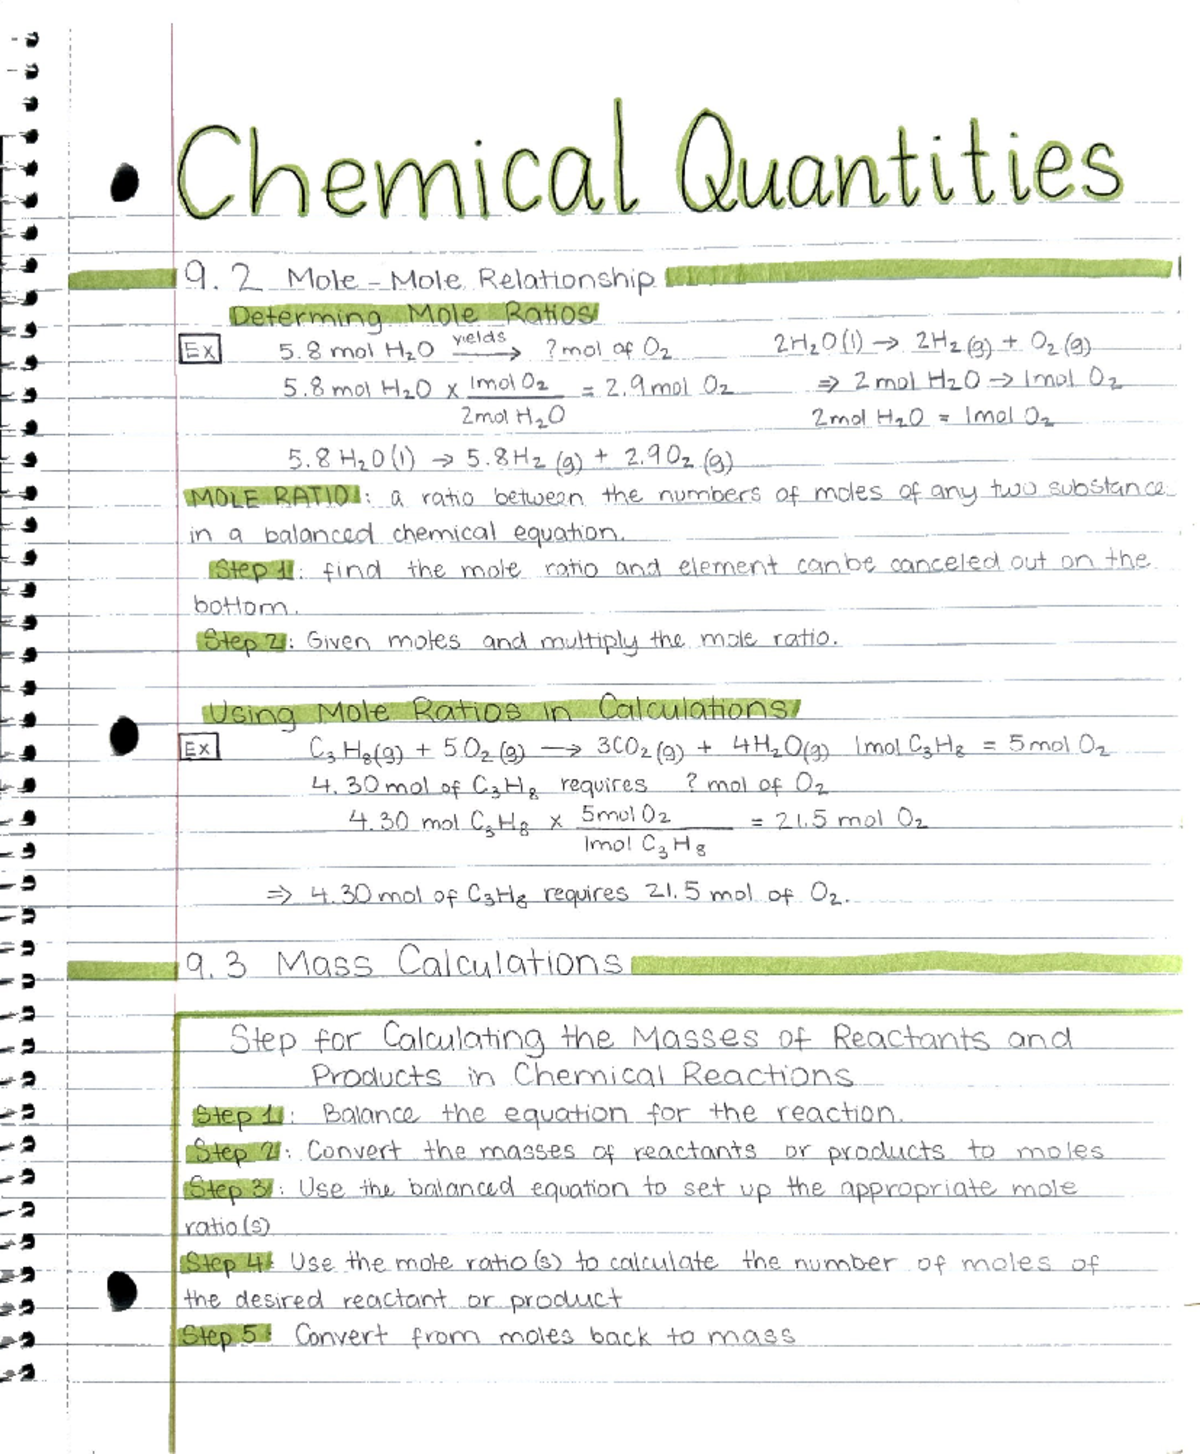 Chemical Quantities
9.2 Mole-Mole Relationship
Determing Mole Ratios
Ex 5.8 mol H₂O yields→ ? mol of O₂ 2H₂O(l) → 2H₂(g) + O₂(g)
5.8 mol H₂O x 1mol O₂ / 2mol H₂O = 2.9 mol O₂ ⇒ 2 mol H₂O → 1mol O₂
2mol H₂O = 1mol O₂
5.8 H₂O(l) → 5.8H₂(g) + 2.9O₂(g)
MOLE RATIO: a ratio between the numbers of moles of any two substance
in a balanced chemical equation.
Step 1: find the mole ratio and element can be canceled out on the
bottom.
Step 2: Given moles and multiply the mole ratio.
Using Mole Ratios in Calculations
Ex C₃H₈(g) + 5O₂(g) → 3CO₂(g) + 4H₂O(g) 1mol C₃H₈ = 5mol O₂
4.30 mol of C₃H₈ requires ? mol of O₂
4.30 mol C₃H₈ x 5mol O₂ / 1mol C₃H₈ = 21.5 mol O₂
⇒ 4.30 mol of C₃H₈ requires 21.5 mol of O₂.
9.3 Mass Calculations
Step for Calculating the Masses of Reactants and
Products in Chemical Reactions
Step 1: Balance the equation for the reaction.
Step 2: Convert the masses of reactants or products to moles
Step 3: Use the balanced equation to set up the appropriate mole
ratio(s)
Step 4: Use the mole ratio(s) to calculate the number of moles of
the desired reactant or product
Step 5: Convert from moles back to mass